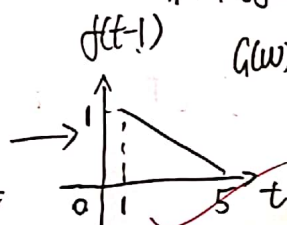 f(t-1)
G(ω)
1
0 1 5 t